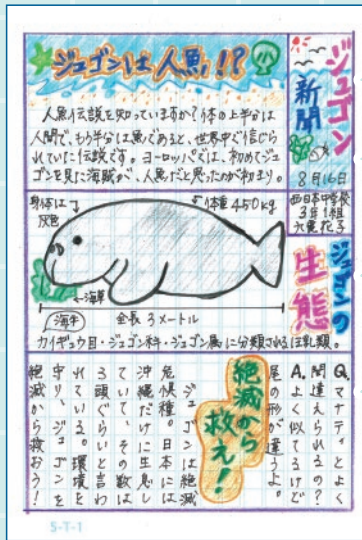 ジュゴン
新聞
8月16日
西日本中学校
3年1組
ジュゴンは人魚!?
人魚伝説を知っていますか?体の上半分は
人間で、もう半分は魚であると、世界中で信じら
れていた伝説です。ヨーロッパでは、初めてジュ
ゴンを見た海賊が、人魚だと思ったのが始まり。
ジュゴンの
生態
身体は
灰色
体重450kg
海草
海牛
全長3メートル
カイギュウ目・ジュゴン科・ジュゴン属に分類されるほ乳類。
Q.マナティとよく
間違えられるの?
A.よく似てるけど
尾の形が違うよ。
絶滅から
救え!
ジュゴンは絶滅
危惧種。日本には
沖縄だけに生息し
ていて、その数は
3頭ぐらいと言わ
れている。環境を
守り、ジュゴンを
絶滅から救おう!
5-T-1